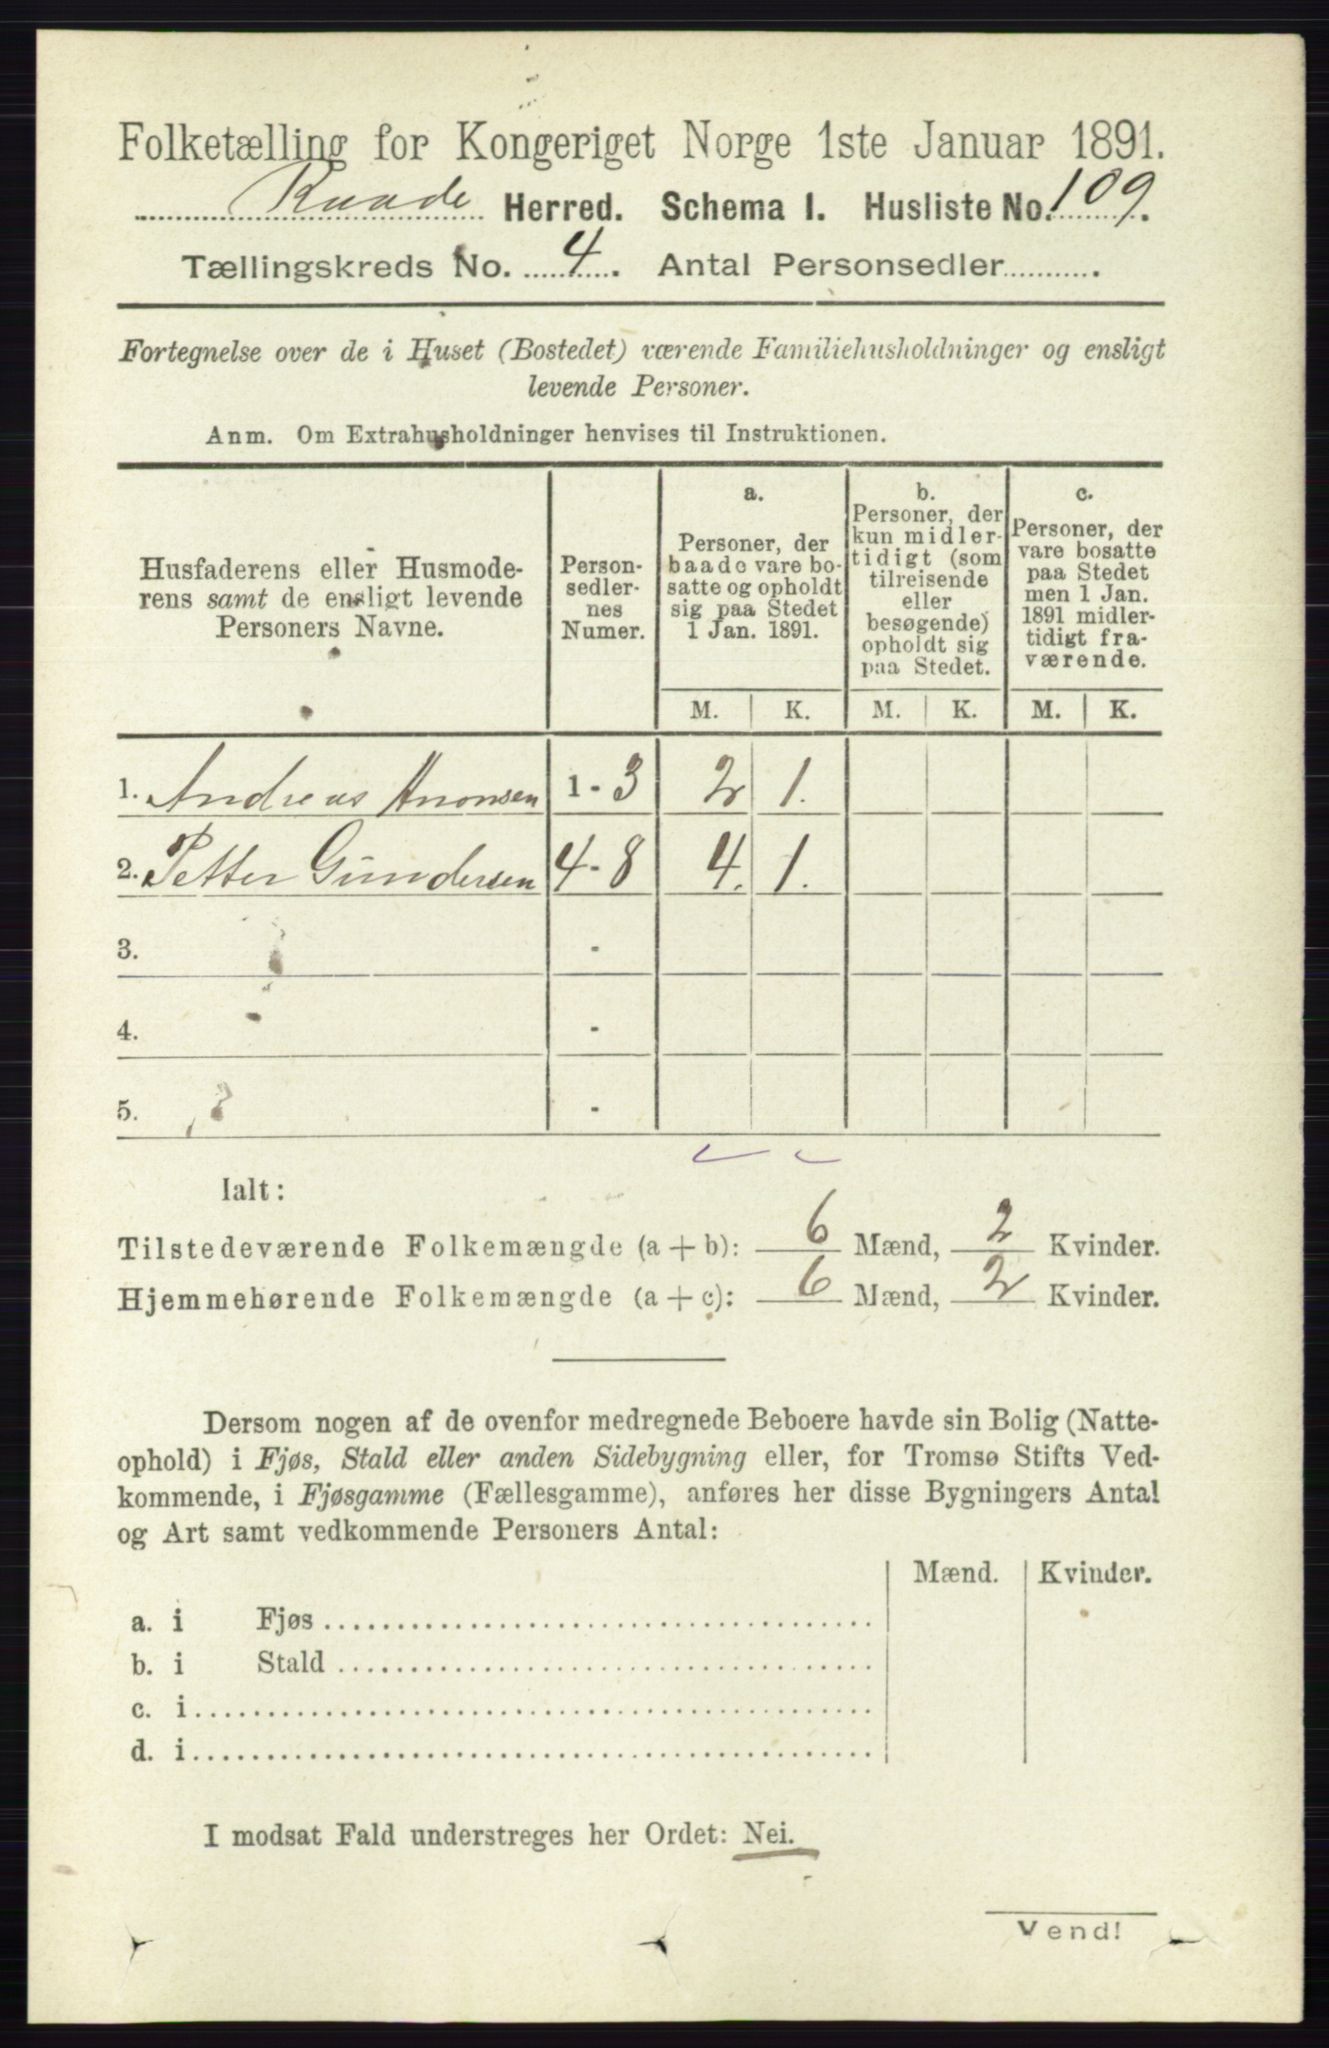 Folketælling for Kongeriget Norge 1ste Januar 1891.
Raade Herred. Schema I. Husliste No. 109.
Tællingskreds No. 4. Antal Personsedler...........
Fortegnelse over de i Huset (Bostedet) værende Familiehusholdninger og ensligt
levende Personer.
Anm. Om Extrahusholdninger henvises til Instruktionen.
Husfaderens eller Husmode-
rens samt de ensligt levende
Personers Navne.
Person-
sedler-
nes
Numer.
a.
Personer, der
baade vare bo-
satte og opholdt
sig paa Stedet
1 Jan. 1891.
b.
Personer, der
kun midler-
tidigt (som
tilreisende
eller
besøgende)
opholdt sig
paa Stedet.
c.
Personer, der
vare bosatte
paa Stedet
men 1 Jan.
1891 midler-
tidigt fra-
værende.
M. K. M. K. M. K.
1. Andreas 1 - 3 2 1.
2. Petter Gundersen 4 - 8 4. 1.
3. -
4. -
5. -
Ialt:
Tilstedeværende Folkemængde (a + b): 6 Mænd, 2 Kvinder.
Hjemmehørende Folkemængde (a + c): 6 Mænd, 2 Kvinder.
Dersom nogen af de ovenfor medregnede Beboere havde sin Bolig (Natte-
ophold) i Fjøs, Stald eller anden Sidebygning eller, for Tromsø Stifts Ved-
kommende, i Fjøsgamme (Fællesgamme), anføres her disse Bygningers Antal
og Art samt vedkommende Personers Antal:
Mænd. Kvinder.
a. i Fjøs
b. i Stald
c. i
d. i
I modsat Fald understreges her Ordet: Nei.
Vend!